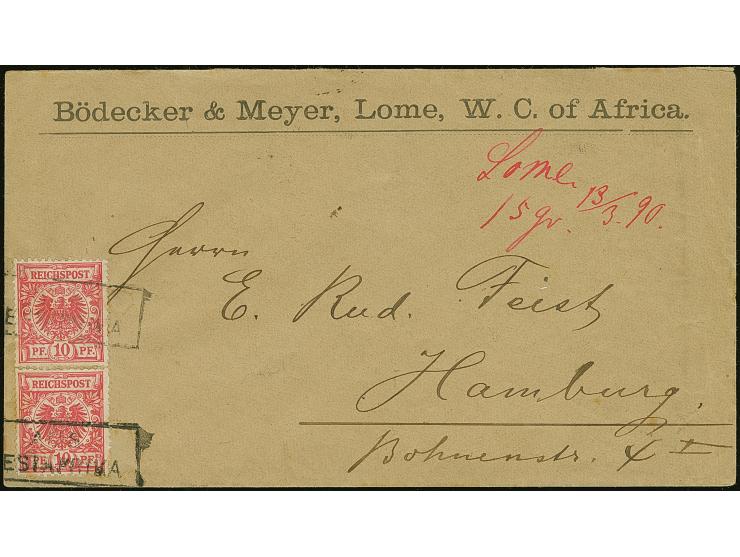 Bödecker & Meyer, Lome, W. C. of Africa.
Lome.
15 gr. 13/3. 90.
Herrn
E. Rud. Feist
Hamburg.
Bohnenstr. 4 I
REICHSPOST
PF. 10 PF.
REICHSPOST
PF. 10 PF.